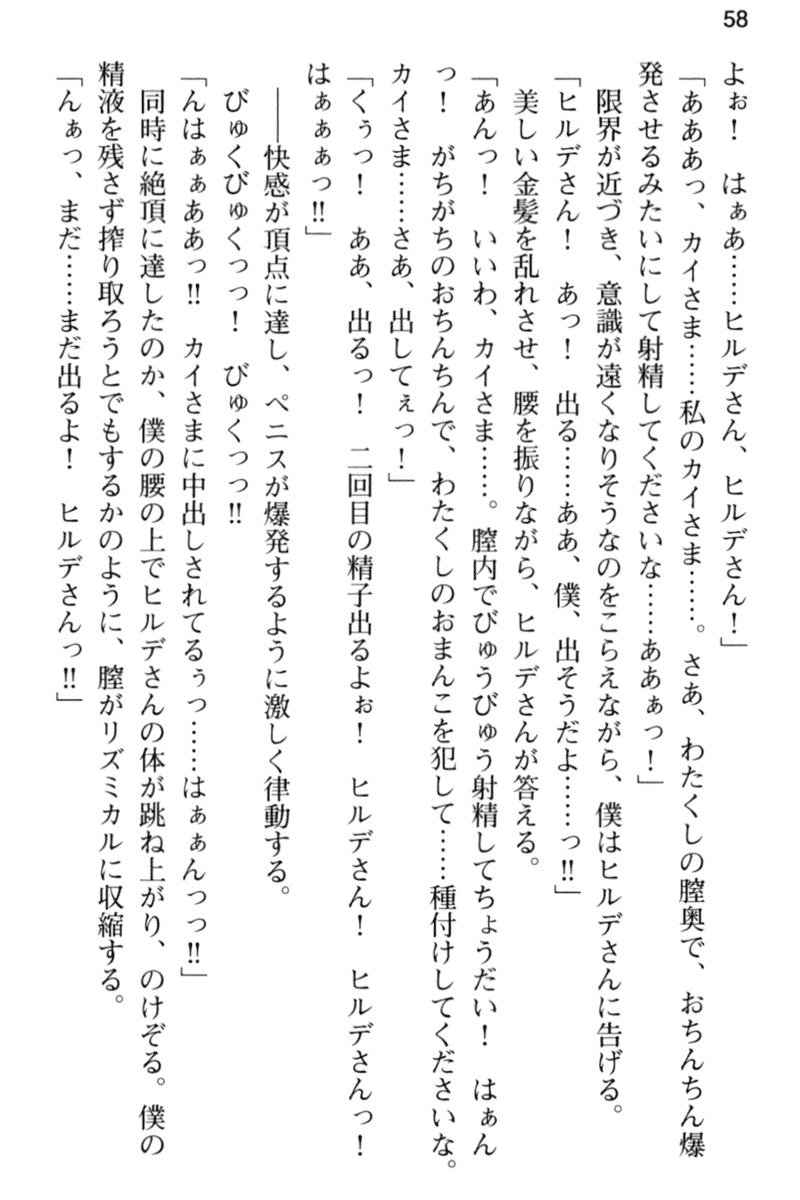 58
よぉ！　はぁあ……ヒルデさん、ヒルデさん！」
「あああっ、カイさま……私のカイさま……。さあ、わたくしの膣奥で、おちんちん爆
発させるみたいにして射精してくださいな……ああぁっ！」
　限界が近づき、意識が遠くなりそうなのをこらえながら、僕はヒルデさんに告げる。
「ヒルデさん！　あっ！　出る……ああ、僕、出そうだよ……っ‼」
　美しい金髪を乱れさせ、腰を振りながら、ヒルデさんが答える。
「あんっ！　いいわ、カイさま……。膣内でびゅうびゅう射精してちょうだい！　はぁん
っ！　がちがちのおちんちんで、わたくしのおまんこを犯して……種付けしてくださいな。
カイさま……さあ、出してぇっ！」
「くぅっ！　ああ、出るっ！　二回目の精子出るよぉ！　ヒルデさん！　ヒルデさんっ！
はぁぁぁっ‼」
　――快感が頂点に達し、ペニスが爆発するように激しく律動する。
　びゅくびゅくっっ！　びゅくっっ‼
「んはぁぁああっ‼　カイさまに中出しされてるぅっ……はぁぁんっっ‼」
　同時に絶頂に達したのか、僕の腰の上でヒルデさんの体が跳ね上がり、のけぞる。僕の
精液を残さず搾り取ろうとでもするかのように、膣がリズミカルに収縮する。
「んぁっ、まだ……まだ出るよ！　ヒルデさんっ‼」